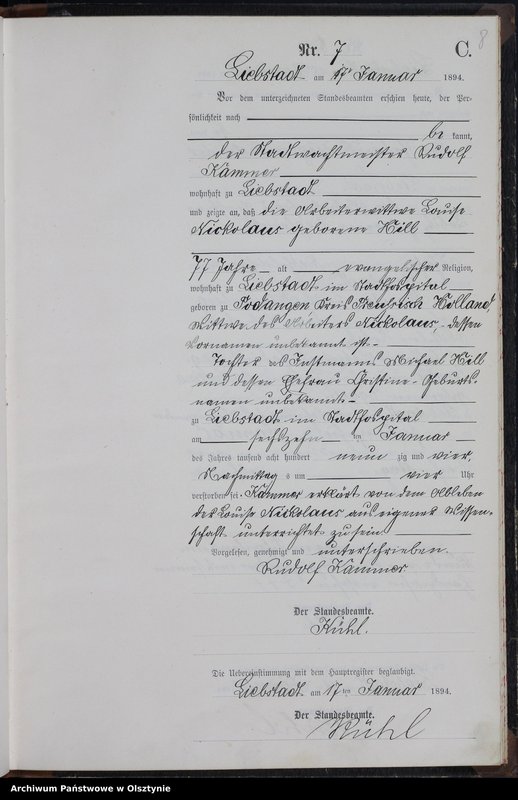 8
Nr. 7 C.
Liebstadt am 17ten Januar 1894.
Vor dem unterzeichneten Standesbeamten erschien heute, der Per-
sönlichkeit nach
be kannt,
der Stadtwachtmeister Rudolf
Kämmer
wohnhaft zu Liebstadt
und zeigte an, daß die Arbeiterwittwe Louise
Nickolaus geborene Hill
77 Jahre alt evangelischer Religion,
wohnhaft zu Liebstadt im Stadthospital
geboren zu Podangen Kreis Preußisch Holland,
Wittwe des Arbeiters Nickolaus, dessen
Vornamen unbekannt ist.-
Tochter des Instmanns Michael Hill
und dessen Ehefrau Christine - Geburts-
namen unbekannt -
zu Liebstadt im Stadthospital
am sechszehn ten Januar
des Jahres tausend acht hundert neun zig und vier,
Nachmittag s um vier Uhr
verstorben sei. Kämmer erklärt von dem Ableben
der Louise Nickolaus aus eigener Wissen-
schaft unterrichtet zu sein
Vorgelesen, genehmigt und unterschrieben.
Rudolf Kämmer
Der Standesbeamte.
Kühl.
Die Uebereinstimmung mit dem Hauptregister beglaubigt.
Liebstadt am 17ten Januar 1894.
Der Standesbeamte.
Kühl
Archiwum Państwowe w Olsztynie